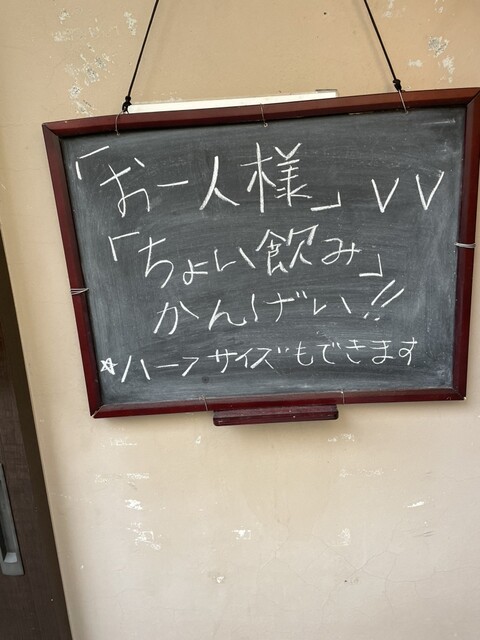 「お一人様」VV
「ちょい飲み」
かんげい!!
☆ハーフサイズもできます